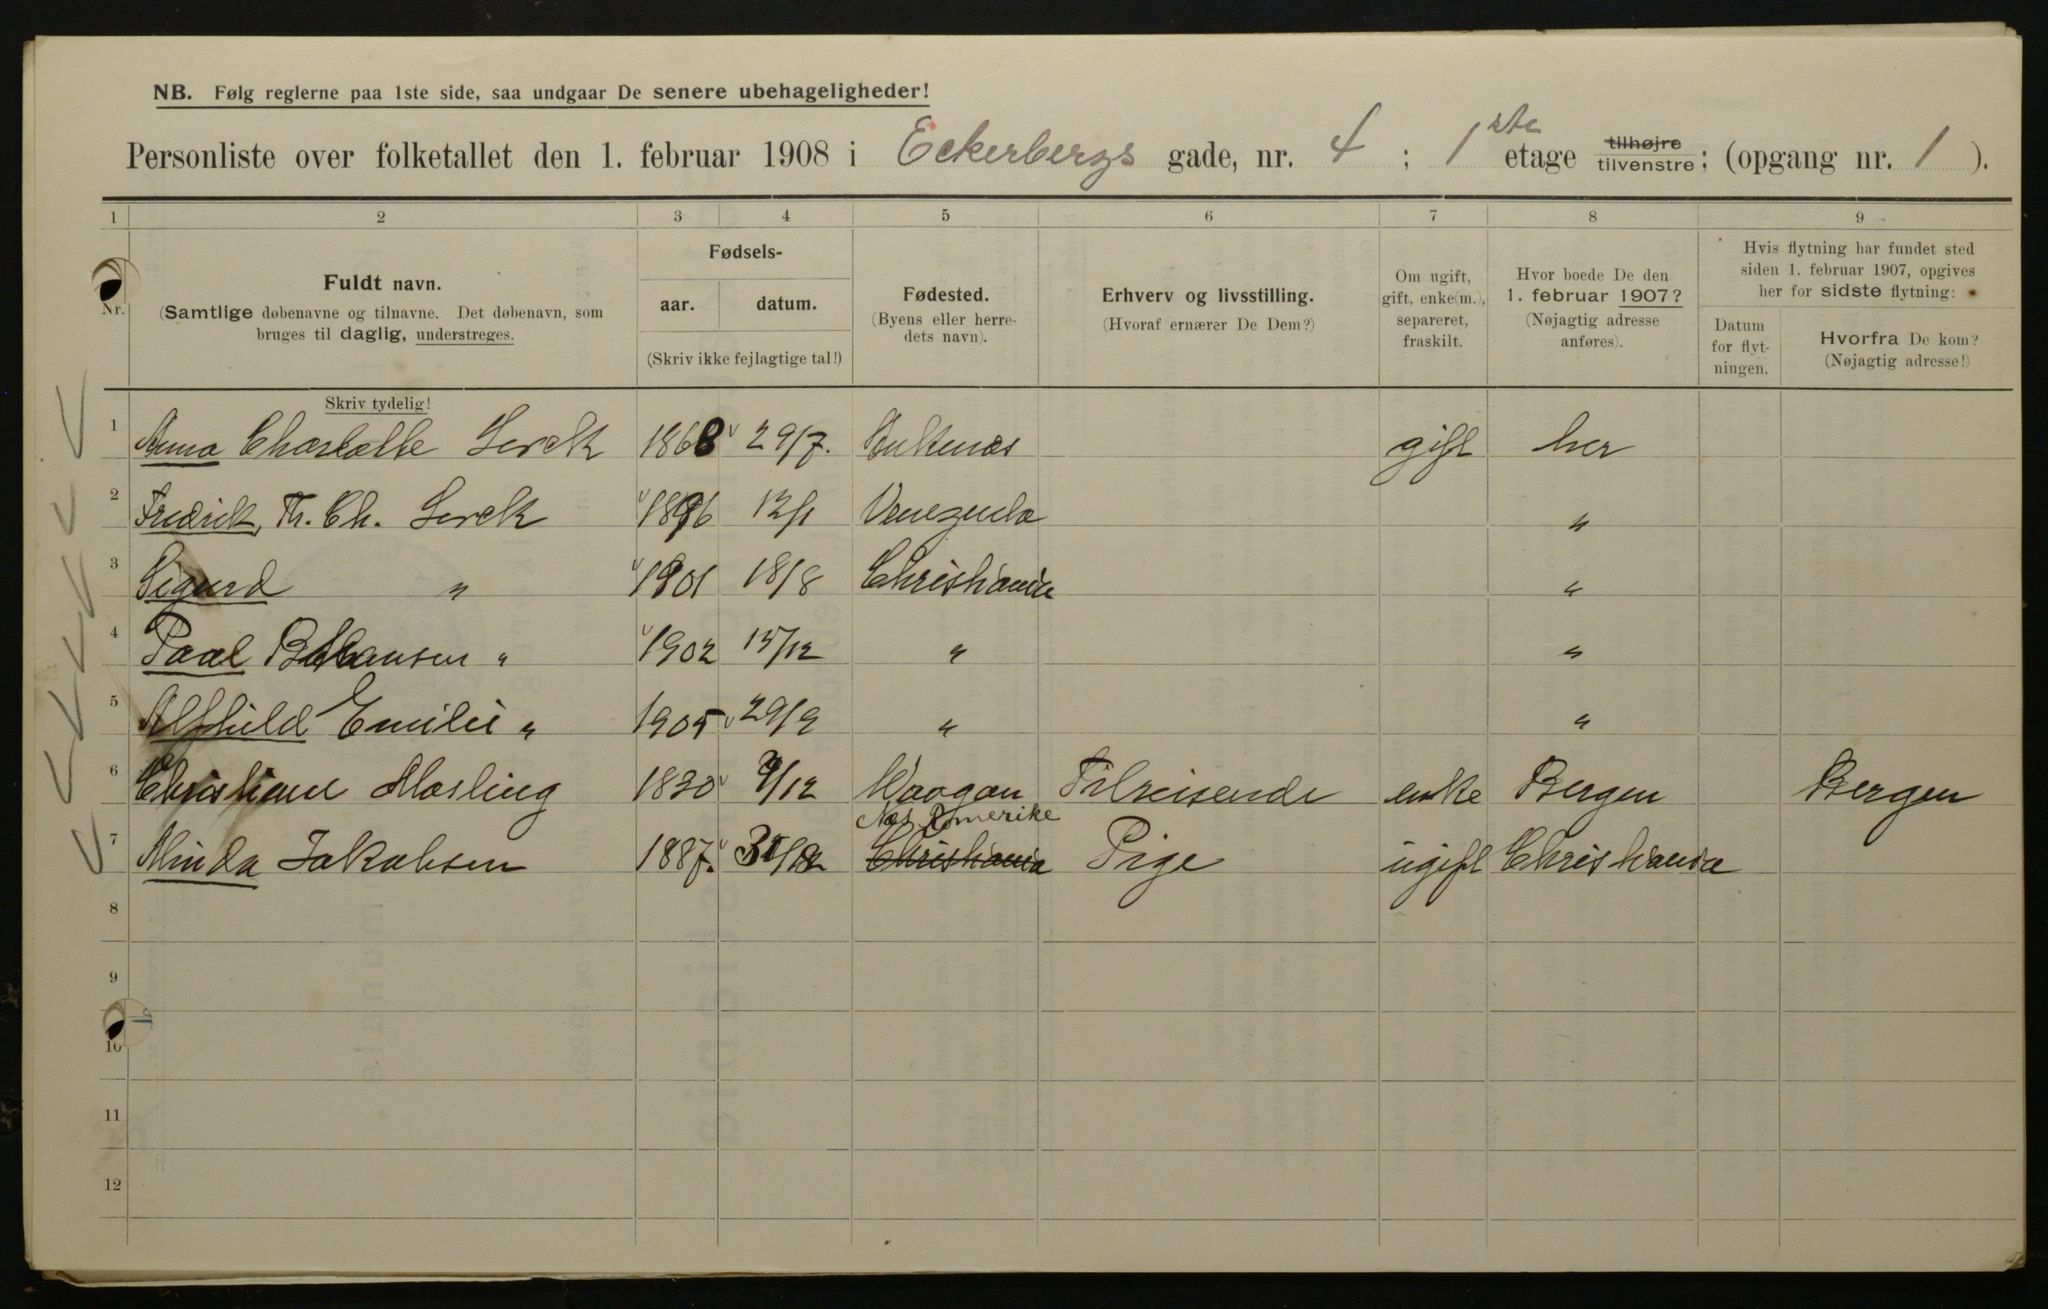 NB. Følg reglerne paa 1ste side, saa undgaar De senere ubehageligheder!
Personliste over folketallet den 1. februar 1908 i Eckerbergs gade, nr. 4 ; 1ste etage tilhøjre tilvenstre; (opgang nr. 1 ).
1 2 3 4 5 6 7 8 9
Nr.
Fuldt navn.
(Samtlige døbenavne og tilnavne. Det døbenavn, som
bruges til daglig, understreges.
Skriv tydelig!
Fødsels-
aar. datum.
(Skriv ikke fejlagtige tal!)
Fødested.
(Byens eller herre-
dets navn).
Erhverv og livsstilling.
(Hvoraf ernærer De Dem?)
Om ugift,
gift, enke(m.),
separeret,
fraskilt.
Hvor boede De den
1. februar 1907?
(Nøjagtig adresse
anføres).
Hvis flytning har fundet sted
siden 1. februar 1907, opgives
her for sidste flytning:
Datum
for flyt-
ningen.
Hvorfra De kom?
(Nøjagtig adresse!)
1 Anna Charlotte 1868 29/7. gift her
2 Fredrik, Th. Ch. 1896 12/1 Venezuela "
3 Sigurd " 1901 18/8 Christiania "
4 Paal " 1902 15/12 " "
5 Alfhild Emilie " 1905 29/9 " "
6 Christiane Masling 1830 9/12 Waagan Tilreisende enke Bergen Bergen
Nes Romerike
7 Minda Jakobsen 1887. Christiania Pige ugift Christiania
8
9
10
11
12